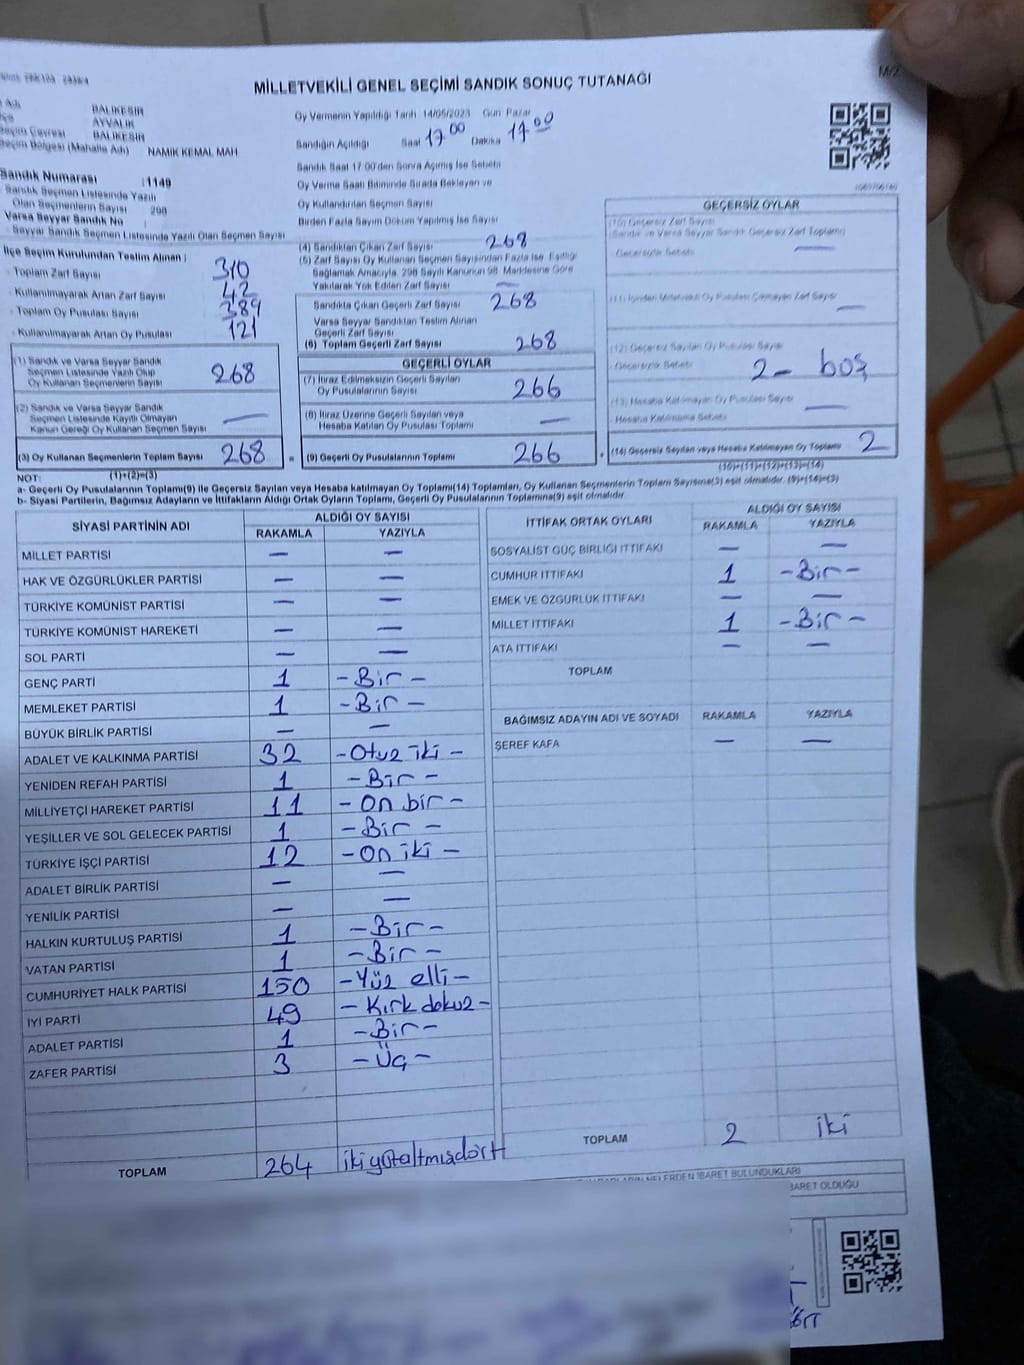 MİLLETVEKİLİ GENEL SEÇİMİ SANDIK SONUÇ TUTANAĞI
BALIKESİR
AYVALIK
Seçim Çevresi BALIKESİR
Seçim Bölgesi (Mahalle Adı) NAMIK KEMAL MAH
Sandık Numarası :1149
Sandık Seçmen Listesinde Yazılı
Olan Seçmenlerin Sayısı : 298
Varsa Seyyar Sandık No :
Seyyar Sandık Seçmen Listesinde Yazılı Olan Seçmen Sayısı
İlçe Seçim Kurulundan Teslim Alınan ;
Toplam Zarf Sayısı 310
Kullanılmayarak Artan Zarf Sayısı 42
Toplam Oy Pusulası Sayısı 389
Kullanılmayarak Artan Oy Pusulası 121
(1) Sandık ve Varsa Seyyar Sandık
Seçmen Listesinde Yazılı Olup
Oy Kullanan Seçmenlerin Sayısı 268
(2) Sandık ve Varsa Seyyar Sandık
Seçmen Listesinde Kayıtlı Olmayan
Kanun Gereği Oy Kullanan Seçmen Sayısı —
(3) Oy Kullanan Seçmenlerin Toplam Sayısı 268
(1)+(2)=(3)
Oy Vermenin Yapıldığı Tarih 14/05/2023 Gün Pazar
Sandığın Açıldığı Saat 17 00 Dakika 17 00
Sandık Saat 17:00'den Sonra Açılmış İse Sebebi
Oy Verme Saati Bitiminde Sırada Bekleyen ve
Oy Kullandırılan Seçmen Sayısı
Birden Fazla Sayım Döküm Yapılmış İse Sayısı
(4) Sandıktan Çıkan Zarf Sayısı 268
(5) Zarf Sayısı Oy Kullanan Seçmen Sayısından Fazla İse, Eşitliği
Sağlamak Amacıyla, 298 Sayılı Kanunun 98. Maddesine Göre
Yakılarak Yok Edilen Zarf Sayısı —
Sandıkta Çıkan Geçerli Zarf Sayısı 268
Varsa Seyyar Sandıktan Teslim Alınan
Geçerli Zarf Sayısı
(6) Toplam Geçerli Zarf Sayısı 268
GEÇERLİ OYLAR
(7) İtiraz Edilmeksizin Geçerli Sayılan
Oy Pusulalarının Sayısı 266
(8) İtiraz Üzerine Geçerli Sayılan veya
Hesaba Katılan Oy Pusulası Toplamı —
= (9) Geçerli Oy Pusulalarının Toplamı 266
GEÇERSİZ OYLAR
(10) Geçersiz Zarf Sayısı
(Sandık ve Varsa Seyyar Sandık Geçersiz Zarf Toplamı)
Geçersizlik Sebebi —
(11) İçinden Milletvekili Oy Pusulası Çıkmayan Zarf Sayısı —
(12) Geçersiz Sayılan Oy Pusulası Sayısı
Geçersizlik Sebebi 2- boş
(13) Hesaba Katılmayan Oy Pusulası Sayısı
Hesaba Katılmama Sebebi —
+ (14) Geçersiz Sayılan veya Hesaba Katılmayan Oy Toplamı 2
(10)+(11)+(12)+(13)=(14)
NOT:
a- Geçerli Oy Pusulalarının Toplamı(9) ile Geçersiz Sayılan veya Hesaba Katılmayan Oy Toplamı(14) Toplamları, Oy Kullanan Seçmenlerin Toplam Sayısına(3) eşit olmalıdır. (9)+(14)=(3)
b- Siyasi Partilerin, Bağımsız Adayların ve İttifakların Aldığı Ortak Oyların Toplamı, Geçerli Oy Pusulalarının Toplamına(9) eşit olmalıdır.
SİYASİ PARTİNİN ADI ALDIĞI OY SAYISI
RAKAMLA YAZIYLA
MİLLET PARTİSİ — —
HAK VE ÖZGÜRLÜKLER PARTİSİ — —
TÜRKİYE KOMÜNİST PARTİSİ — —
TÜRKİYE KOMÜNİST HAREKETİ — —
SOL PARTİ — —
GENÇ PARTİ 1 -Bir-
MEMLEKET PARTİSİ 1 -Bir-
BÜYÜK BİRLİK PARTİSİ — —
ADALET VE KALKINMA PARTİSİ 32 -Otuz iki-
YENİDEN REFAH PARTİSİ 1 -Bir-
MİLLİYETÇİ HAREKET PARTİSİ 11 -On bir-
YEŞİLLER VE SOL GELECEK PARTİSİ 1 -Bir-
TÜRKİYE İŞÇİ PARTİSİ 12 -On iki-
ADALET BİRLİK PARTİSİ — —
YENİLİK PARTİSİ — —
HALKIN KURTULUŞ PARTİSİ 1 -Bir-
VATAN PARTİSİ 1 -Bir-
CUMHURİYET HALK PARTİSİ 150 -Yüz elli-
İYİ PARTİ 49 -Kırk dokuz-
ADALET PARTİSİ 1 -Bir-
ZAFER PARTİSİ 3 -Üç-
TOPLAM 264 ikiyüzaltmışdört
İTTİFAK ORTAK OYLARI ALDIĞI OY SAYISI
RAKAMLA YAZIYLA
SOSYALİST GÜÇ BİRLİĞİ İTTİFAKI — —
CUMHUR İTTİFAKI 1 -Bir-
EMEK VE ÖZGÜRLÜK İTTİFAKI — —
MİLLET İTTİFAKI 1 -Bir-
ATA İTTİFAKI — —
TOPLAM
BAĞIMSIZ ADAYIN ADI VE SOYADI RAKAMLA YAZIYLA
ŞEREF KAFA — —
TOPLAM 2 iki
NELERDEN İBARET BULUNDUKLARI
İBARET OLDUĞU